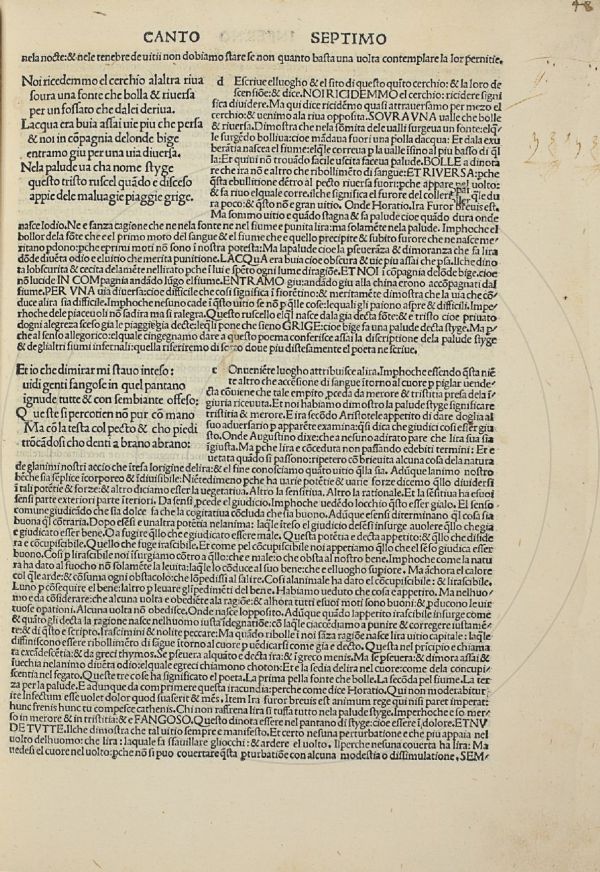 48
CANTO SEPTIMO
nela nocte:& nele tenebre de uitii non dobiamo stare se non quanto basta una uolta contemplare la lor pernitie.
Noi ricedemmo el cerchio alaltra riua
soura una fonte che bolla & riuersa
per un fossato che dalei deriua.
Lacqua era buia assai uie piu che persa
& noi in cõpagnia delonde bige
entramo giu per una uia diuersa.
Nela palude ua cha nome styge
questo tristo ruscel quãdo e disceso
appie dele maluagie piaggie grige.
d Escriue elluogho & el sito di questo quĩto cerchio: & la loro de
scensiõe: & dice. NOI RICIDEMMO el cerchio: ricidere signi
fica diuidere. Ma qui dice ricidẽmo quasi attrauersamo per mezo el
cerchio: & uenimo ala riua opposita. SOVRA VNA ualle che bolle
& riuersa. Dimostra che nela sõmita dele ualli surgeua un fonte: elq̃
le surgẽdo bolliua: cioe mãdaua fuori una polla dacqua: Et dala exu
berãtia nascea el fiume: elq̃le correua p la ualle isino al piu basso di q̃l
la: Et quiui nõ trouãdo facile uscita facea ua palude. BOLLE a dinota
re che ira nõ e altro che ribollimẽto di sangue: ET RIVERSA: pche
q̃sta ebullitione dẽtro al pecto riuersa fuori: pche appare nel uolto:
& fa riuo elquale corre: ilche significa el furore del collerico: elq̃le du
ra poco: & q̃sto nõ e gran uitio. Onde Horatio. Ira Furor breuis est.
Ma son imo uitio e quãdo stagna & fa palude cioe quãdo dura onde
nasce lodio. Ne e sanza cagione che ne nela fonte ne nel fiume e punita lira: ma solamẽte nela palude. Imphoche el
bollor dela fõte che e el primo moto del sangue & el fiume che e quello precipite & subito furore che ne nasce me-
ritano pdono: pche epriimi moti nõ sono ĩ nostra potesta: Ma la palude cioe la pseueraza & dimoranza che fa lira
dõde diuẽta odio e el uitio che merita punitione. LACQVA era buia cioe obscura & uie piu assai che psa. Ilche dino
ta lobscurita & cecita dela mẽte nellirato pche ĩ lui e spẽto ogni lume di ragiõe. ET NOI ĩ cõpagnia delõde bige. cioe
nõ lucide IN COMpagnia andãdo lũgo el fiume. ENTRAMO giu: andãdo giu alla china erono accõpagnati dal
fiume. PER VNA uia diuersa: cioe difficile che cosi significa ĩ fiorẽtino: & meritamẽte dimostra che la uia che cõ-
duce alira sia difficile. Imphoche nesuno cade ĩ q̃sto uitio se nõ p q̃lle cose: lequali gli paiono aspre & difficili. Imper
rhoche dele piaceuoli nõ sadira ma si ralegra. Questo ruscello elq̃l nasce dala gia decta fõte: & e tristo cioe priuato
dogni alegreza sceso gia le piaggie gia decte: leq̃li pone che sieno GRIGE: cioe bige fa una palude decta styge. Ma p
che al senso allegorico: elquale cingegnamo dare a questo poema conferisce assai la discriptione dela palude styge
& deglialtri fiumi infernali: quella riferiremo di sotto doue piu distesamente el poeta ne scriue.
Et io che dimirar mi stauo inteso:
uidi genti fangose in quel pantano
ignude tutte & con sembiante offeso:
Queste si percotien nõ pur cõ mano
Ma cõ la testa col pecto & cho piedi
trõcãdosi cho denti a brano abrano:
c Onueniẽte luogho attribuisce alira. Imphoche essendo q̃sta niẽ
te altro che accẽsione di sangue ĩtorno al cuore p pigliar uende-
cta cõuiene che tale empito, preceda merore & tristitia presa dela ĩ
giuria riceuuta. Et noi habiamo dimostro la palude styge significare
tristitia & merore. E ira secõdo Aristotele appetito di dare doglia al
suo aduersario p apparẽte examina: q̃si dica che giudici cosi esser giu
sto. Onde Augustino dixe: che a nesuno adirato pare che lira sua sia
igiusta. Ma pche lira e cõceduta non passando edebiti termini: Et e
uietata quãdo si passono: ripetero cõ breuita alcuna cosa dela natura
de glanimi nostri accio che ĩtesa lorigine del ira: & el fine conosciamo quãto uitio q̃lla sia. Adũque lanimo nostro
bẽche sia sẽplice icorporeo & ĩdiuisibile: Niẽtedimeno pche ha uarie potẽtie & uarie forze dicemo q̃llo diuidersi
ĩ tali potẽtie & forze: & altro diciamo esser la uegetatiua. Altro la sensitiua. Altro la rationale. Et la sẽsitiua ha esuoi
sensi parte exteriori parte ĩteriori. Da sensi, prcede el giudicio. Imphoche uedẽdo locchio q̃llo esser gialo. El senso
comune giudicãdo che sia dolce fa che la cogitatiua cõcluda che sia buono. Adũque esensi diterminano q̃l cosa sia
buona q̃l cõtraria. Dopo esẽsi e unaltra potẽtia nelanima: laq̃le ĩteso el giudicio desẽsi insurge a uolere q̃llo che gia
e giudicato esser bene. O a fugire q̃llo che e giudicato essere male. Questa potẽtia e decta appetito: & q̃llo che diside
ra e cõcupiscibile. Quello che fuge irascibile. Et come pel cõcupiscibile noi appetiamo q̃llo che el sẽso giudica esser
buono. Cosi p lirascibile noi ĩsurgiamo cõtro a q̃llo: che e male: & che obsta al nostro bene. Imphoche come la natu
ra ha dato al fuocho nõ solamẽte la leuita: laq̃le lo cõduce al suo bene: che e elluogho supiore. Ma ãchora el calore
col q̃le arde: & cõsuma ogni obstacolo: che lo ĩpedissi al salire. Cosi alanimale ha dato el cõcupiscibile: & lirascibile.
Luno p cõseguire el bene: laltro p leuare gli ĩpedimẽti del bene. Habiamo ueduto che cosa e appetito. Ma nelhuo-
mo e da cõsiderare: che alcuna uolta e obediẽte ala ragiõe: & alhora tutti esuoi moti sono buoni: & pducono le uir
tuose opationi. Alcuna uolta nõ obedisce. Onde nasce lopposito. Adũque quãdo lappetito irascibile insurge come
& quãto gli decta la ragione nasce nelhuomo iusta ĩdegnatiõe: cõ laq̃le ciaccẽdiamo a punire & corregere iustamẽ-
te: & di q̃sto e scripto. Irascimini & nolite peccare: Ma quãdo ribolle ĩ noi sãza ragiõe nasce lira uitio capitale: laq̃le
diffiniscono essere ribollimẽto di sãgue ĩtorno al cuore p uẽdicarsi come gia e decto. Questa nel pricipio e chiama
ta excãdescẽtia: & da greci thymos. Se pseuera alquãto e decta ira: & ĩ greco menis. Ma se pseuera: & dimora assai &
fucchia nelanimo diuẽta odio: elquale egreci chiamono chotos: Et e la sedia delira nel cuore: come dela concupi-
scentia nel fegato. Queste tre cose ha significato el poeta. La prima pella fonte che bolle. La secõda pel fiume. La ter
za per la palude. E adunque da comprimere questa iracundia: perche come dice Horatio. Qui non moderabitur
irę Infectum esse uolet dolor quod suaserit & mẽs, Item Ira furor breuis est animum rege qui nisi paret imperat:
hunc frenis hunc tu compesce cathenis. Chi non raffrena lira si tuffa tutto nela palude styge. Imperhoche e so mer-
so in merore & in tristitia: & e FANGOSO. Questo dinota essere nel pantano di styge: cioe essere ĩ dolore. ET NV
DE TVTTE. Ilche dimostra che tal uitio sempre e manifesto. Et certo nesuna perturbatione e che piu appaia nel
uolto delhuomo: che lira: laquale fa sfauillare gliocchi: & ardere el uolto, Ilperche nesuna couerta ha lira: Ma
uedesi el cuore nel uolto: pche nõ si puo couertare q̃sta pturbatiõe con alcuna modestia o dissimulatione, SEM-